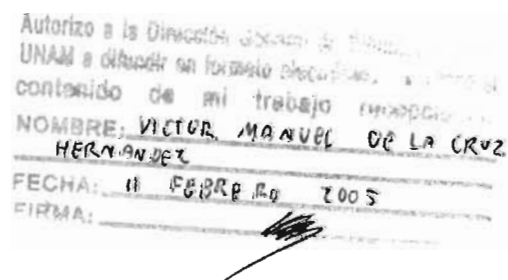 Autorizo a la Dirección General de
UNAM a difundir en formato electrónico
contenido de mi trabajo recepcional
NOMBRE: VICTOR MANUEL DE LA CRUZ
HERNANDEZ
FECHA: 11 FEBRERO 2005
FIRMA: